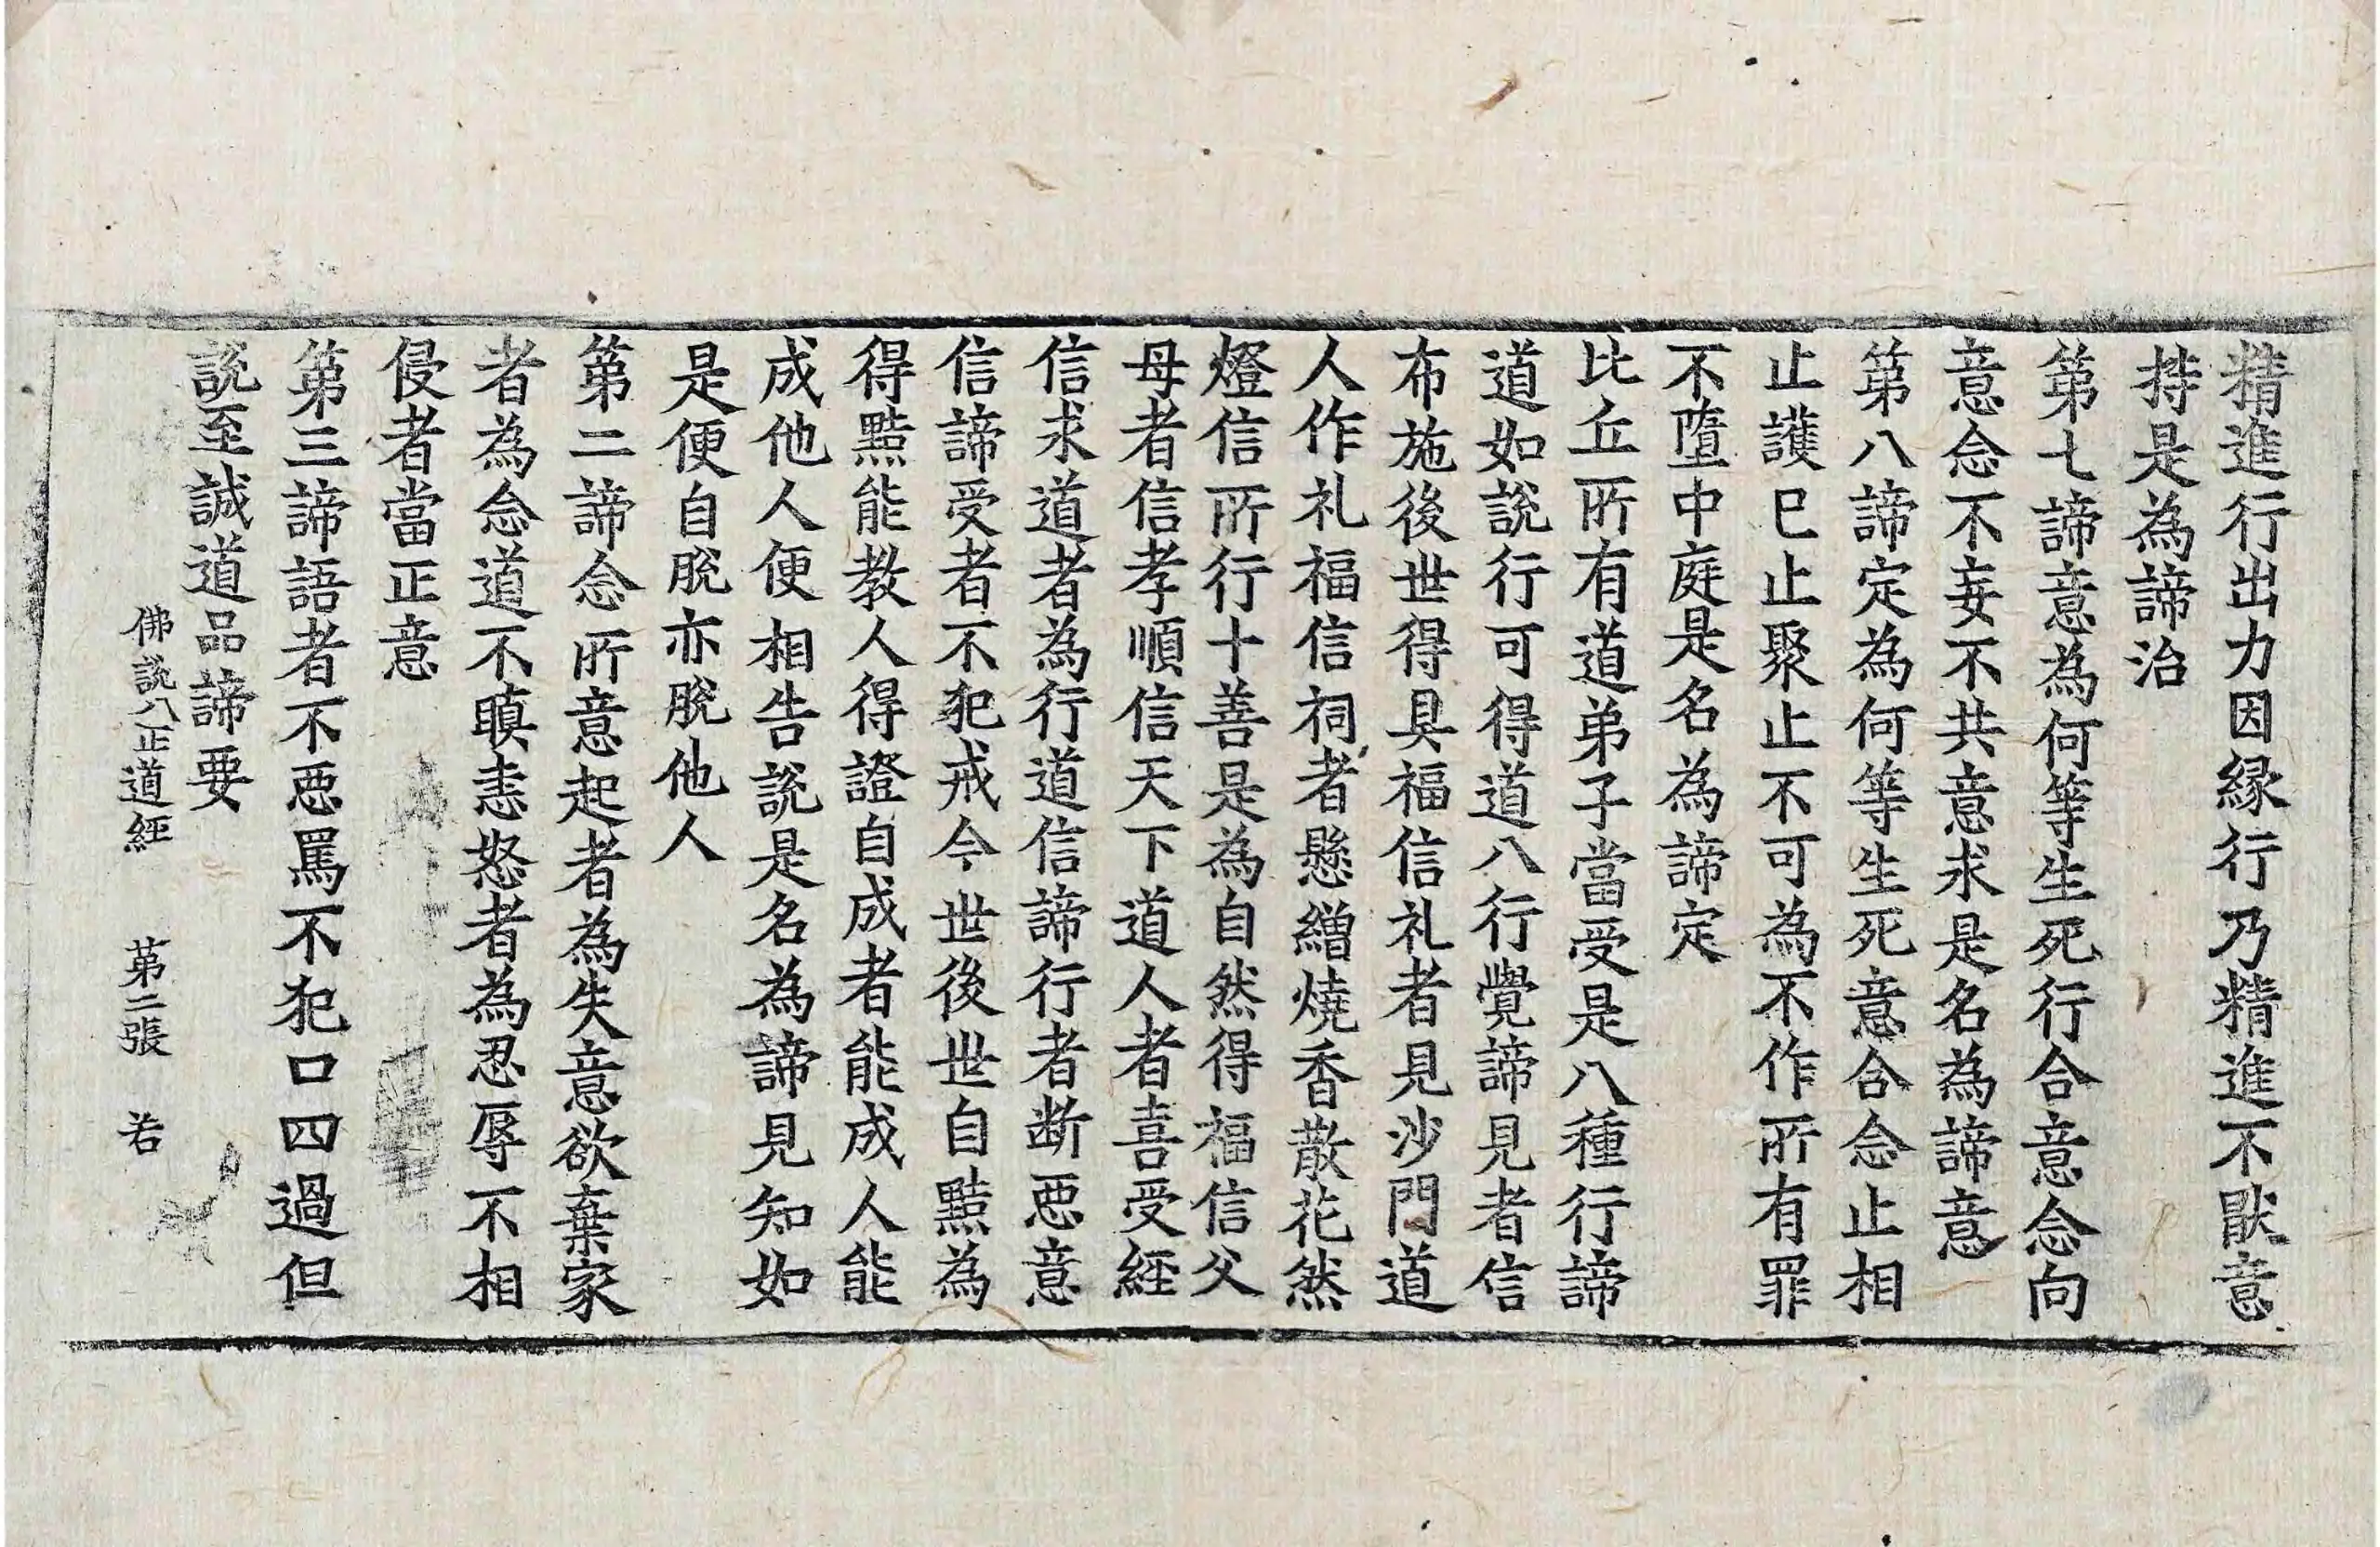 精進行出力因縁行乃精進不猒意
持是為諦治
第七諦意為何等生死行合意念向
意念不妄不共意求是名為諦意
第八諦定為何等生死意合念止相
止護已止聚止不可為不作所有罪
不墮中庭是名為諦定
比丘所有道弟子當受是八種行諦
道如說行可得道八行覺諦見者信
布施後世得具福信礼者見沙門道
人作礼福信祠者懸繒燒香散花然
燈信所行十善是為自然得福信父
母者信孝順信天下道人者喜受經
信求道者為行道信諦行者断惡意
信諦受者不犯戒今世後世自黠為
得黠能教人得證自成者能成人能
成他人便相告說是名為諦見知如
是便自脫亦脫他人
第二諦念所意起者為失意欲棄家
者為念道不瞋恚怒者為忍辱不相
侵者當正意
第三諦語者不惡罵不犯口四過但
說至誠道品諦要
佛說八正道經 第二張 若